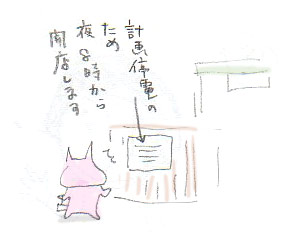 計画停電の
ため
夜8時から
開店します